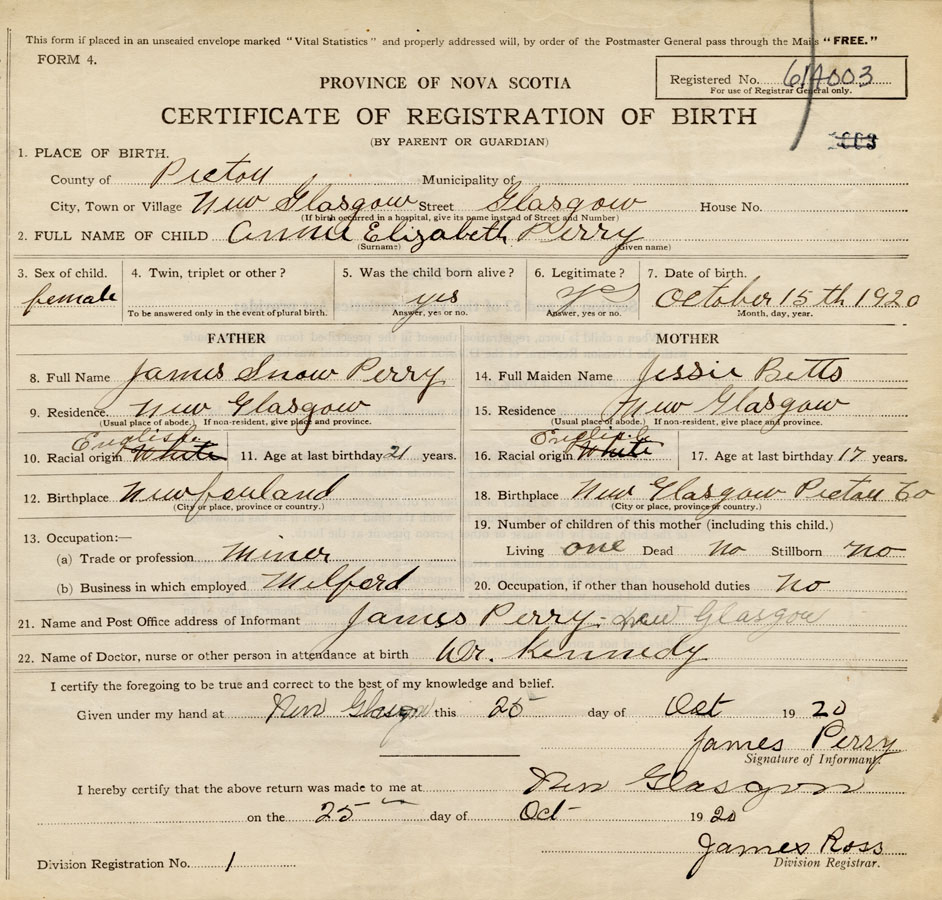 This form if placed in an unsealed envelope marked "Vital Statistics" and properly addressed will, by order of the Postmaster General pass through the Mails "FREE."
FORM 4.
PROVINCE OF NOVA SCOTIA
Registered No. 61A003
For use of Registrar General only.
CERTIFICATE OF REGISTRATION OF BIRTH
(BY PARENT OR GUARDIAN)
1. PLACE OF BIRTH.
County of Pictou Municipality of
City, Town or Village New Glasgow Street Glasgow House No.
(If birth occurred in a hospital, give its name instead of Street and Number)
2. FULL NAME OF CHILD Annie Elizabeth Perry
(Surname) (Given name)
3. Sex of child. 4. Twin, triplet or other? 5. Was the child born alive? 6. Legitimate? 7. Date of birth.
female yes October 15th 1920
To be answered only in the event of plural birth. Answer, yes or no. Answer, yes or no. Month, day, year.
FATHER MOTHER
8. Full Name James Snow Perry 14. Full Maiden Name Jessie Betts
9. Residence New Glasgow 15. Residence New Glasgow
(Usual place of abode.) If non-resident, give place and province. (Usual place of abode.) If non-resident, give place and province.
English English
10. Racial origin White 11. Age at last birthday 21 years. 16. Racial origin White 17. Age at last birthday 17 years.
12. Birthplace Newfounland 18. Birthplace New Glasgow Pictou Co
(City or place, province or country.) (City or place, province or country.)
19. Number of children of this mother (including this child.)
13. Occupation:—
(a) Trade or profession Miner Living one Dead no Stillborn no
(b) Business in which employed Milford 20. Occupation, if other than household duties no
21. Name and Post Office address of Informant James Perry. New Glasgow
22. Name of Doctor, nurse or other person in attendance at birth Dr. Kennedy
I certify the foregoing to be true and correct to the best of my knowledge and belief.
Given under my hand at New Glasgow this 25 day of Oct 1920
James Perry
Signature of Informant.
I hereby certify that the above return was made to me at New Glasgow
on the 25 day of Oct 1920
James Ross
Division Registrar.
Division Registration No. 1